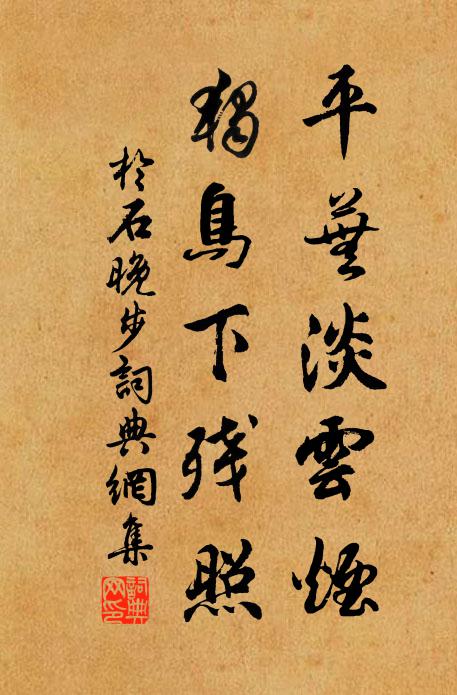 平蕪淡雲煙
獨鳥下殘照
於石晚步詞典網集
詞典網印